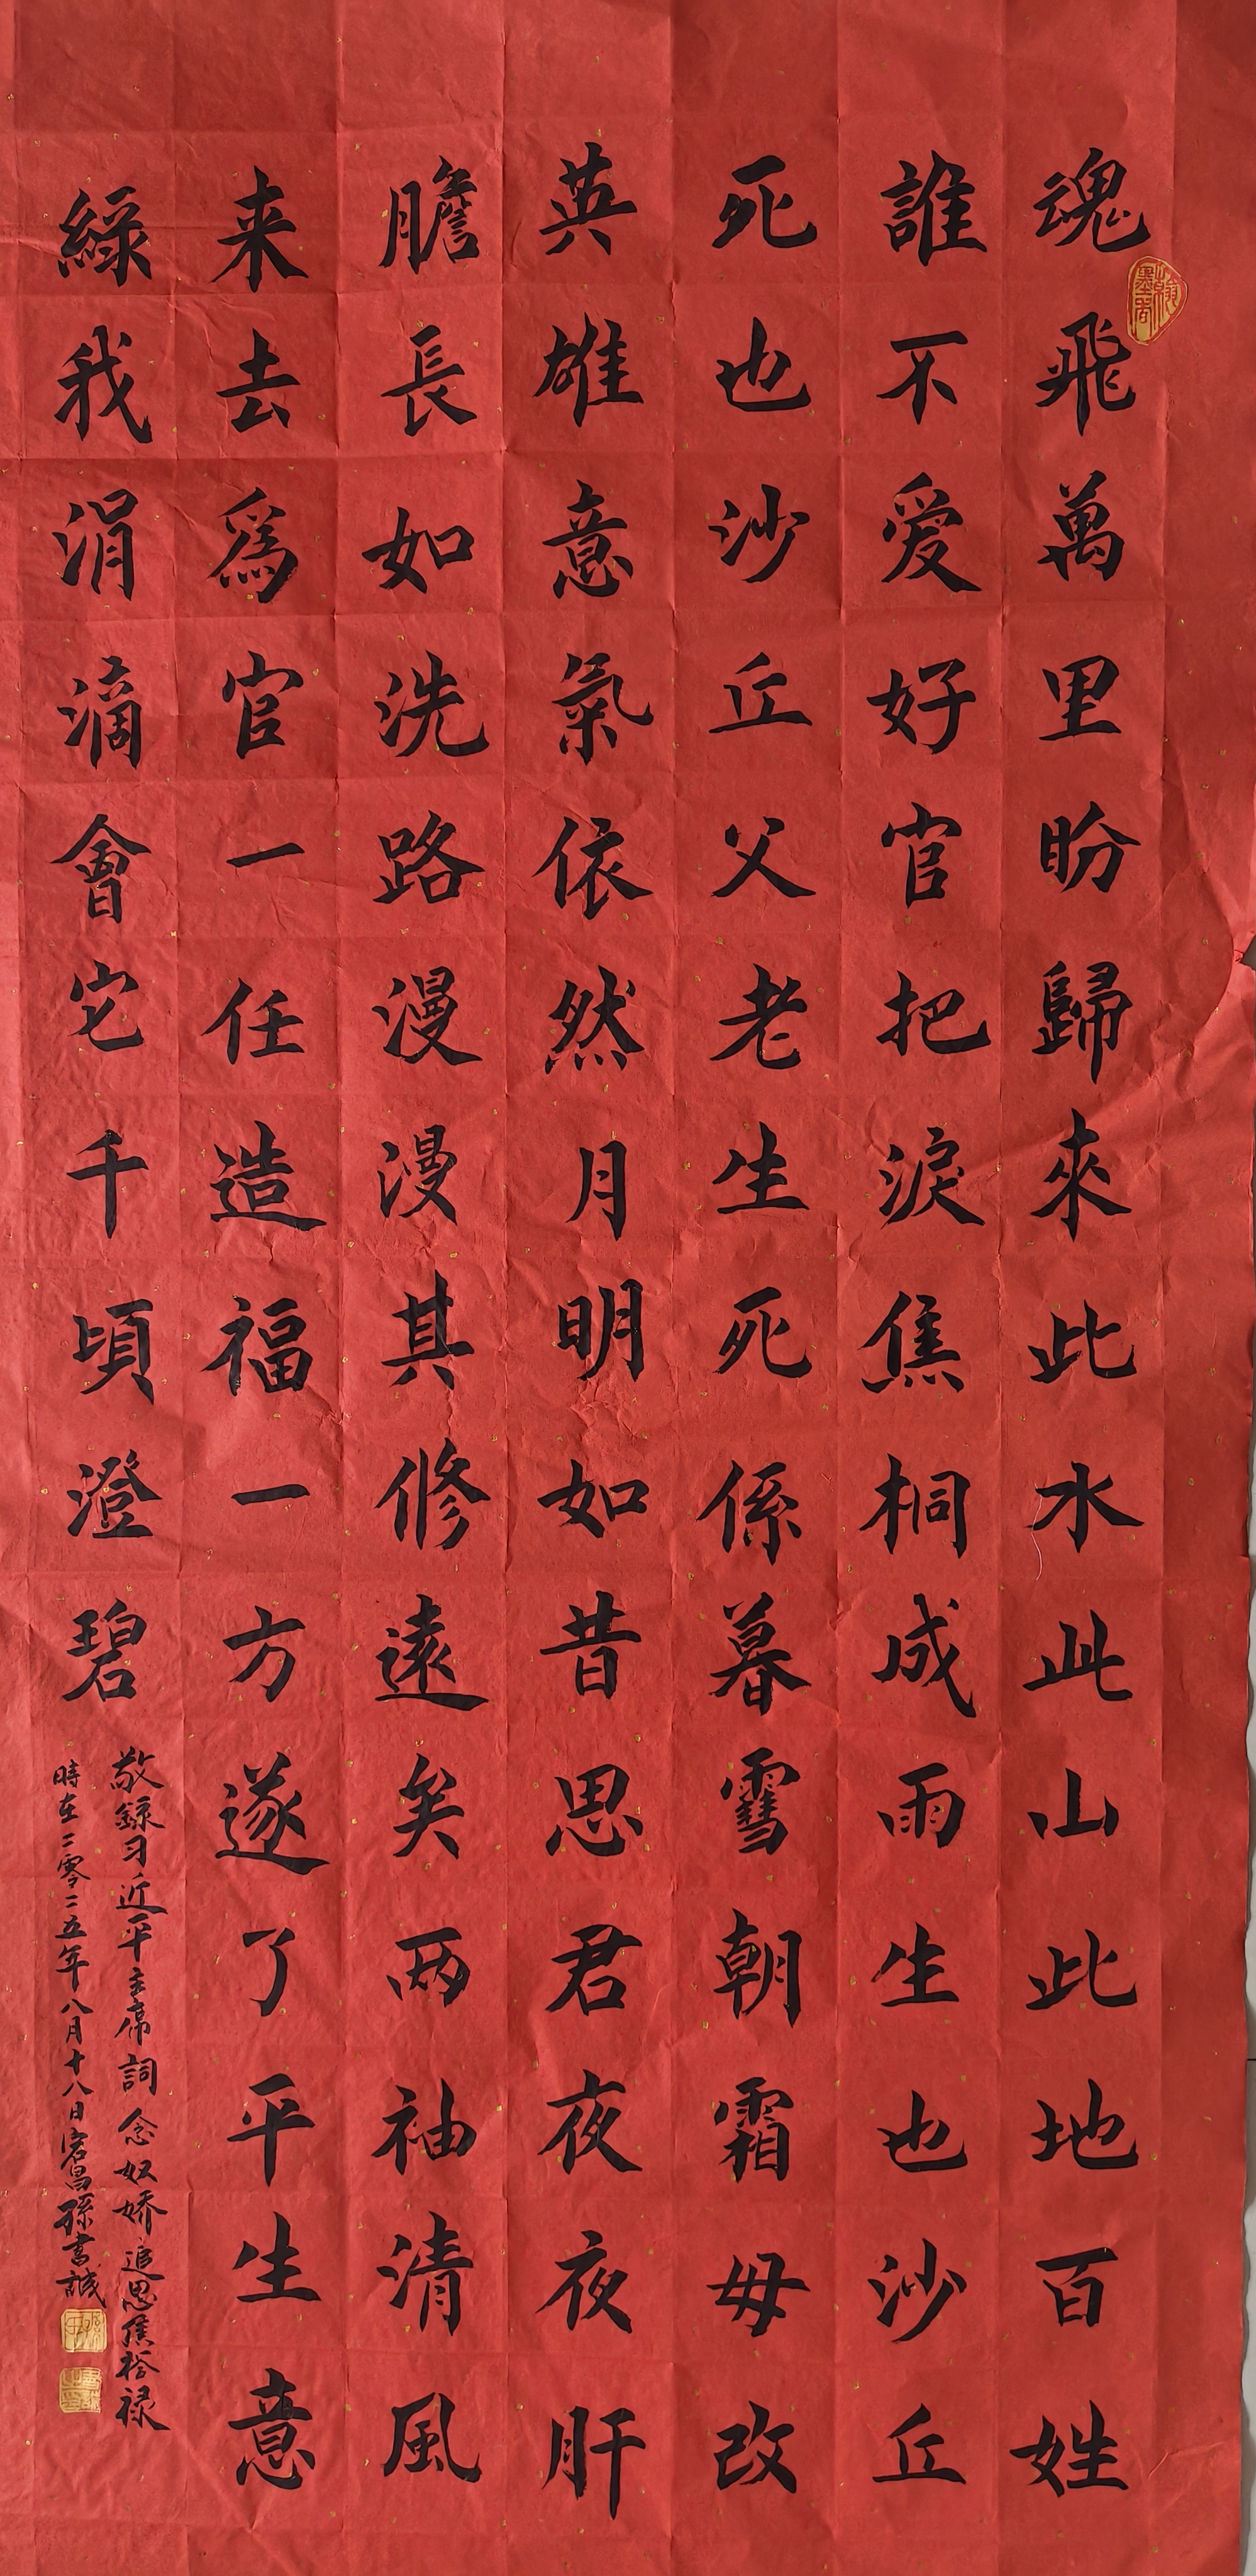 魂飛萬里盼歸來此水此山此地百姓
誰不爱好官把淚焦桐成雨生也沙丘
死也沙丘父老生死係暮雪朝霜毋改
英雄意氣依然月明如昔思君夜夜肝
膽長如洗路漫漫其修遠矣兩袖清風
来去為官一任造福一方遂了平生意
綠我涓滴會它千頃澄碧
敬録习近平主席詞念奴娇追思焦裕禄
時在二零二五年八月十八日宕昌孫書誠